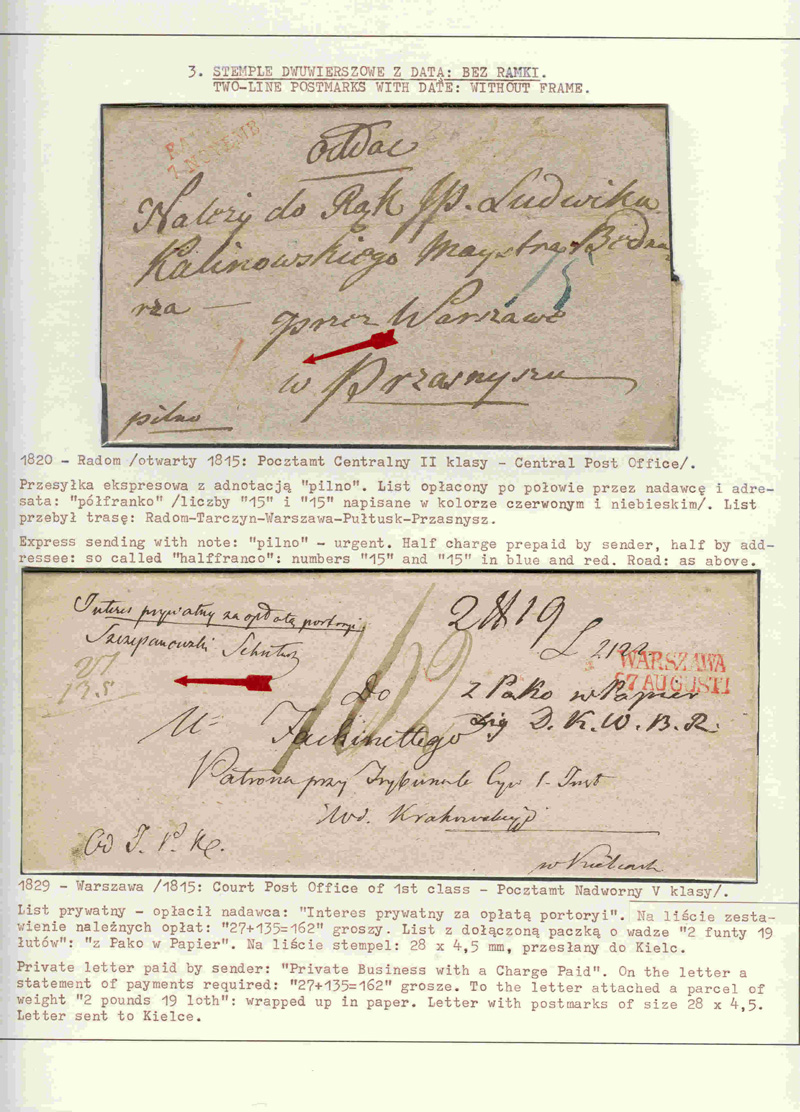 3. STEMPLE DWUWIERSZOWE Z DATĄ: BEZ RAMKI.
TWO-LINE POSTMARKS WITH DATE: WITHOUT FRAME.
oddac
Należy do Rąk JP. Ludwika
Kalinowskiego Maystra Bedna
rza —
przez Warszawe
w Przasnyszu
pilno
1820 - Radom /otwarty 1815: Pocztamt Centralny II klasy - Central Post Office/.
Przesyłka ekspresowa z adnotacją "pilno". List opłacony po połowie przez nadawcę i adre-
sata: "półfranko" /liczby "15" i "15" napisane w kolorze czerwonym i niebieskim/. List
przebył trasę: Radom-Tarczyn-Warszawa-Pułtusk-Przasnysz.
Express sending with note: "pilno" - urgent. Half charge prepaid by sender, half by add-
ressee: so called "halffranco": numbers "15" and "15" in blue and red. Road: as above.
Interes prywatny za opłatą portoryi
Szczepanowski
27
13.5
162
2 19
WARSZAWA
27 AUGUSTI
Do
z Pako w Papier
D. K. W. B. R.
Jackinettego
Patrona przy Trybunale Cyw 1. Inst
Wd. Krakowskiego
w Kielcach
1829 - Warszawa /1815: Court Post Office of 1st class - Pocztamt Nadworny V klasy/.
List prywatny - opłacił nadawca: "Interes prywatny za opłatą portoryi". Na liście zesta-
wienie należnych opłat: "27+135=162" groszy. List z dołączoną paczką o wadze "2 funty 19
łutów": "z Pako w Papier". Na liście stempel: 28 x 4,5 mm, przesłany do Kielc.
Private letter paid by sender: "Private Business with a Charge Paid". On the letter a
statement of payments required: "27+135=162" grosze. To the letter attached a parcel of
weight "2 pounds 19 loth": wrapped up in paper. Letter with postmarks of size 28 x 4,5.
Letter sent to Kielce.